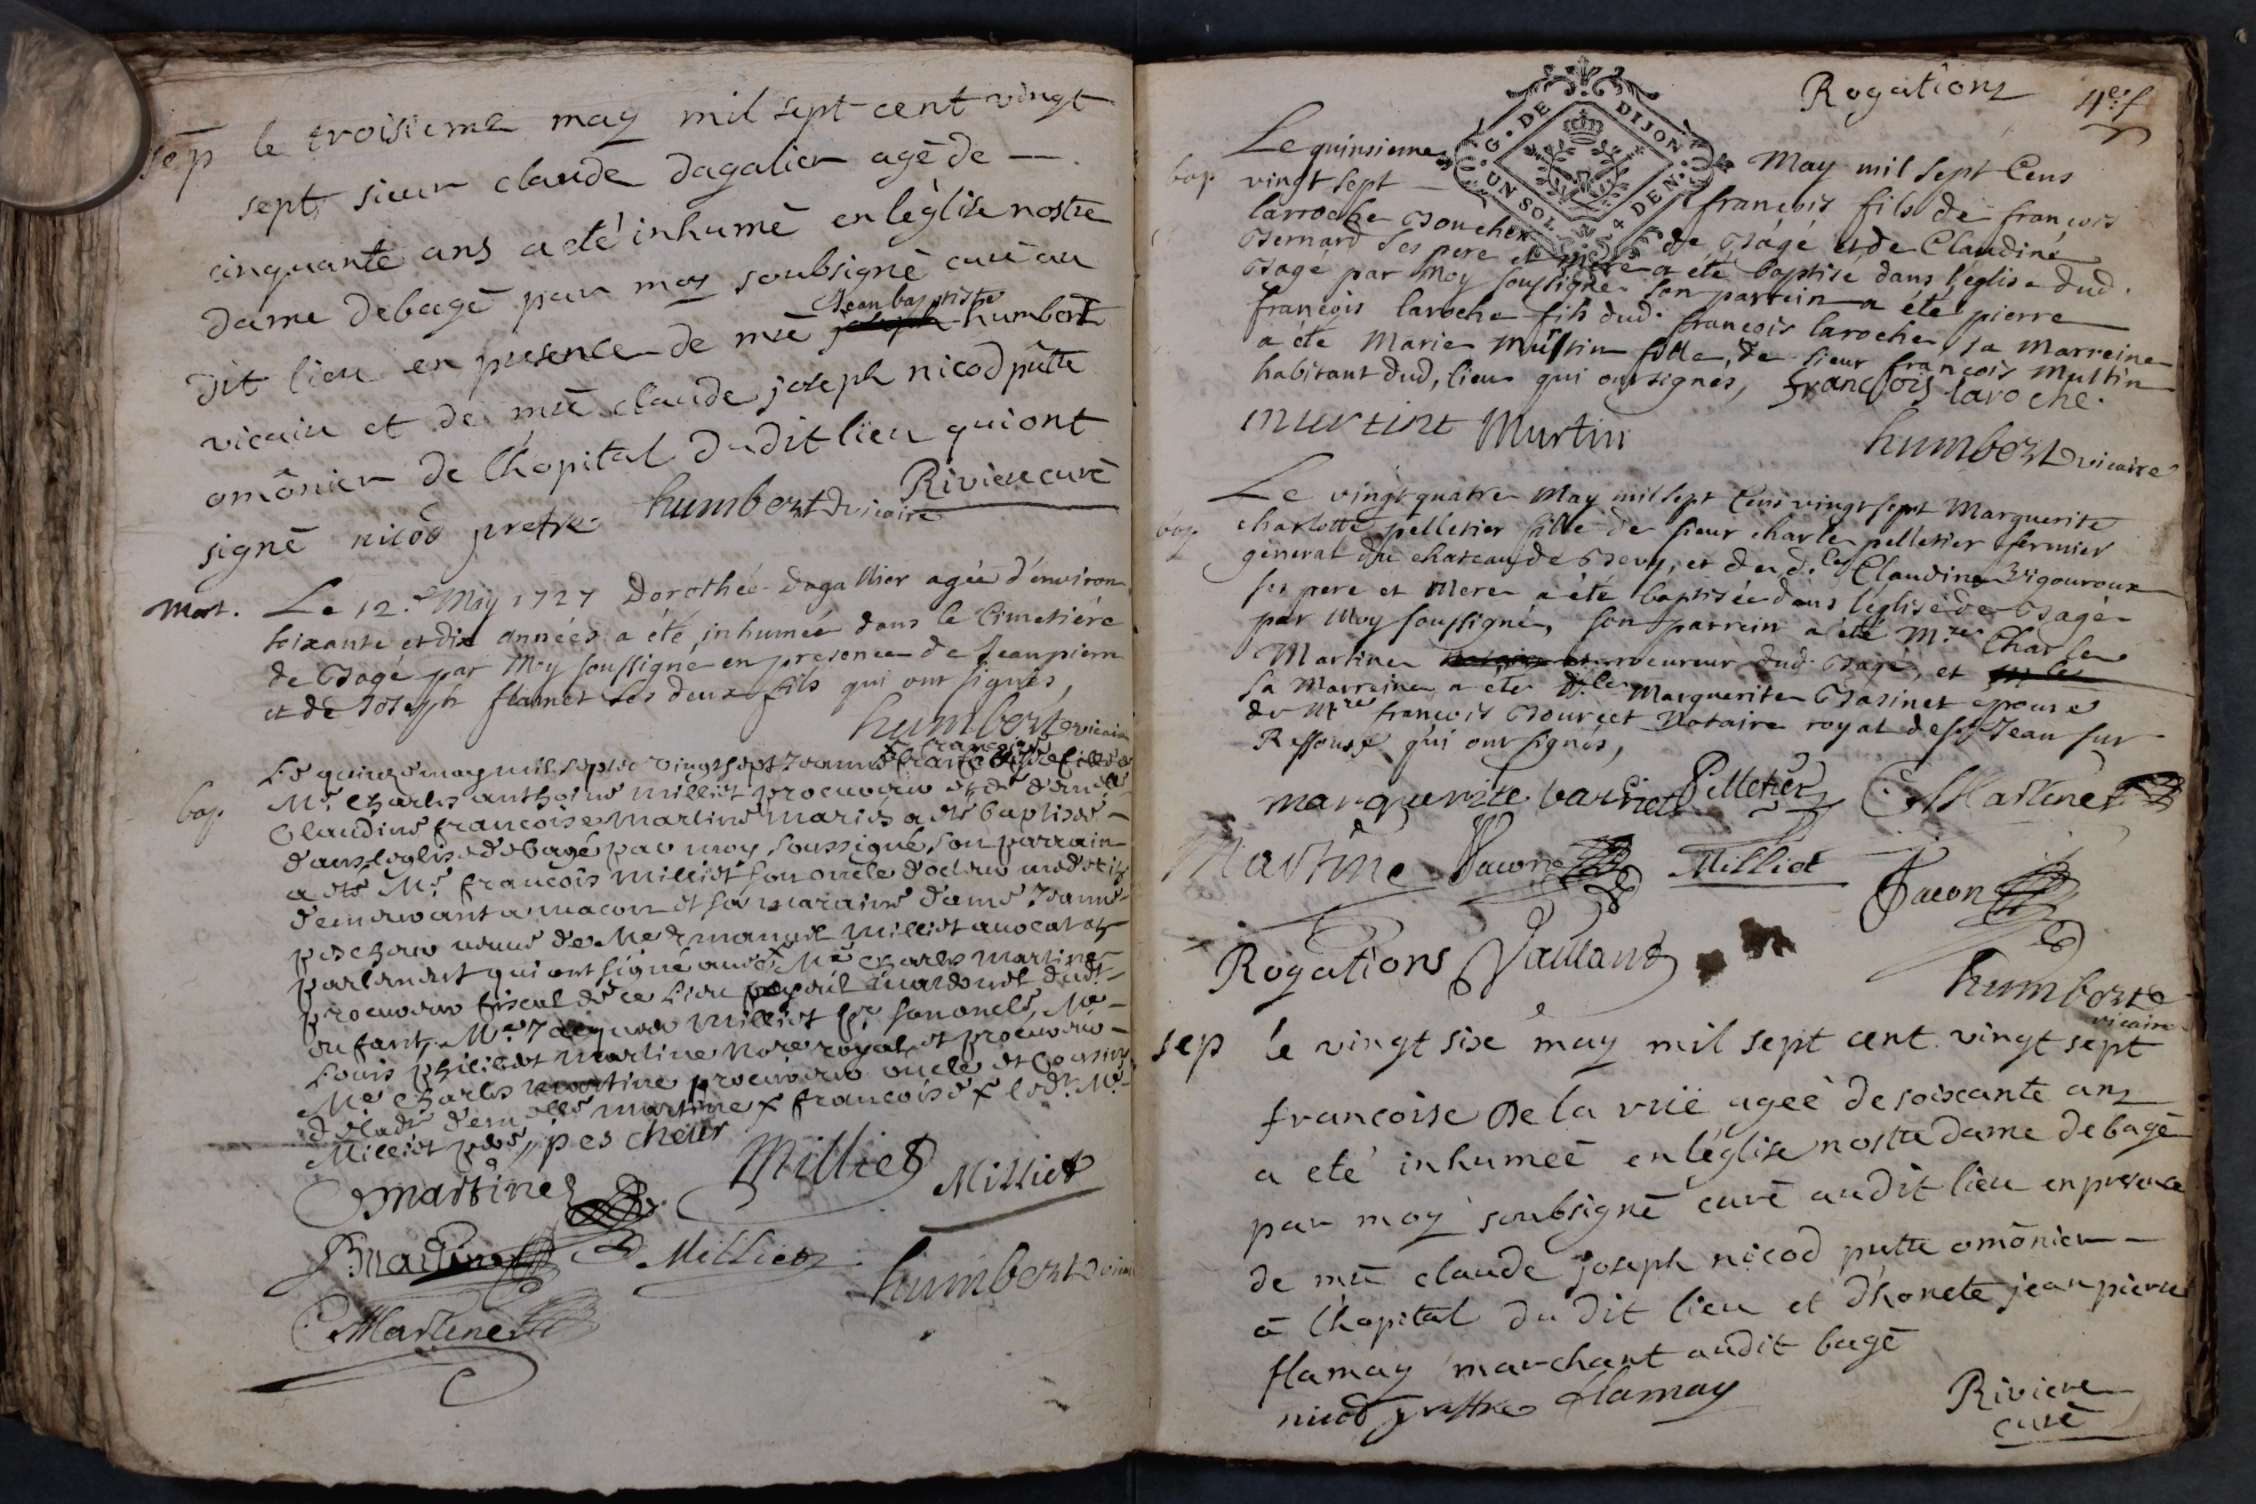 sep le troisieme may mil sept cent vingt
sept sieur claude dagalier agé de —
cinquante ans a eté inhumé en léglise nostre
dame de bagé par moy soubsigné curé au
Jean baptiste
dit lieu en presence de mre humbert
vicaire et de mre claude joseph nicod pttre
omônier de l'hopital dudit lieu qui ont
signé nicod pretre humbert vicaire Riviere curé
Mort. Le 12.e May 1727 Dorothée Dagallier agée d'environ
soixante et dix années a été inhumée dans le Cimetiére
de Bagé par Moy soussigné en presence de Jean pierre
et de Joseph flamet ses deux fils qui ont signés,
humbert vicaire
françoise
bap. Le quinze may mil sept cent vingt sept Jeanne fille de
Mr. Charles anthoine Milliet procureur et de demlle
Claudine françoise Martine mariés a esté baptisée —
dans l'eglise de bagé par moy soussigné, son parrain
a esté Mr. françois Milliet son oncle docteur medecin
demeurant a macon et sa maraine dame Jeanne
pescheur veufve de Me Emanuel Milliet avocat au
parlement qui ont signé avec Me Charles Martine
procureur fiscal de ce lieu ayeul maternel dudt
enfant, Mre Jacques Milliet son oncle, Me
Louis philibert Martine Nore royal et procureur —
Me Charles Martine procureur oncle et cousin
de ladt demlle Martine x françoise x ledt Me
Milliet pere, pescheur
Martine Milliet Milliet
Martine Milliet humbert vicaire
C Martine
Rogations 4e f
G. DE DIJON
UN SOL 4 DEN.
bap. Le quinsieme May mil sept Cens
vingt sept — françois fils de françois
larroche Boucher de Bâgé et de Claudine
Bernard ses pere et mere a été baptisé dans l'eglise dud.
Bagé par Moy soussigné son parrein a été pierre
françois laroche fils dud. françois laroche, sa Marreine
a été Marie Mustin fille de sieur françois Mustin
habitant dud, lieu qui ont signés, françois laroche.
Murtin humbert vicaire
bap. Le vingt quatre May mil sept Cens vingt sept Marguerite
charlotte pelletier fille de sieur charle pelletier fermier
general du chateau de et de d.lle Claudine Vigouroux
ses pere et Mere a été baptisée dans l'église de Bagé
par Moy soussigné, son parrein a été M.re Charle
Martine procureur dud. Bagé, et
sa Marreine a été d.lle Marguerite Basinet epouse
de Mtre françois Bourcet Notaire royal de St Jean sur
Ressouse qui ont signés,
marguerite Pelletier C Martine
Martine Jacon Milliet Jacon
Rogations Vaillant humbert
vicaire
sep le vingt six may mil sept cent vingt sept
francoise De la rüe agée de soixante ans
a eté inhumeé en léglise nostre dame de bagé
par moy soubsigné curé audit lieu en presence
de mre claude joseph nicod pttre omônier —
a l'hopital du dit lieu et d'honete jean pierre
flamay marchant audit bagé
nicod prestre flamay Riviere
curé